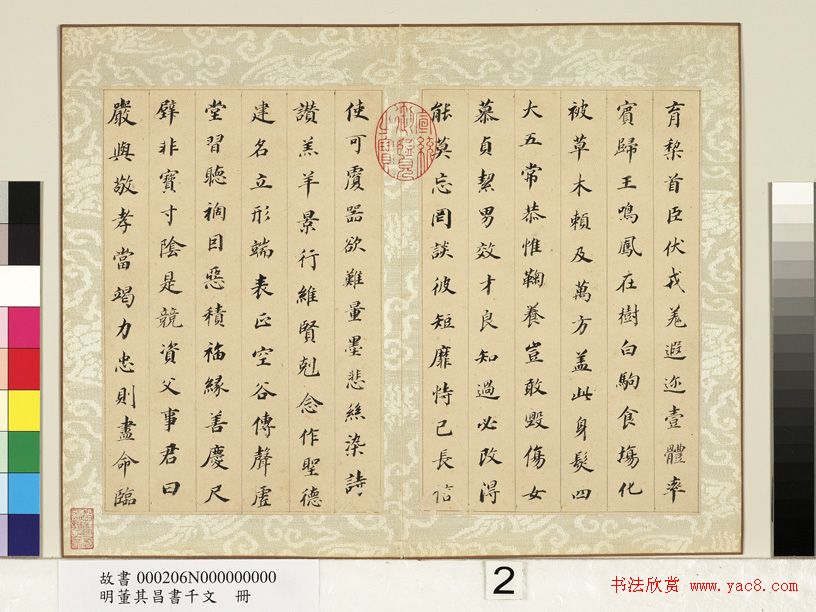 育黎首臣伏戎羌遐迩壹體率
賓歸王鳴鳳在樹白駒食場化
被草木賴及萬方盖此身髮四
大五常恭惟鞠養豈敢毀傷女
慕貞絜男效才良知過必改得
能莫忘罔談彼短靡恃己長信
使可覆器欲難量墨悲絲染詩
讚羔羊景行維賢剋念作聖德
建名立形端表正空谷傳聲虛
堂習聽禍因惡積福緣善慶尺
璧非寶寸陰是競資父事君曰
嚴與敬孝當竭力忠則盡命臨
宣統御覽之寶
故書 000206N000000000
明董其昌書千文 冊
2
书法欣赏 www.yac8.com